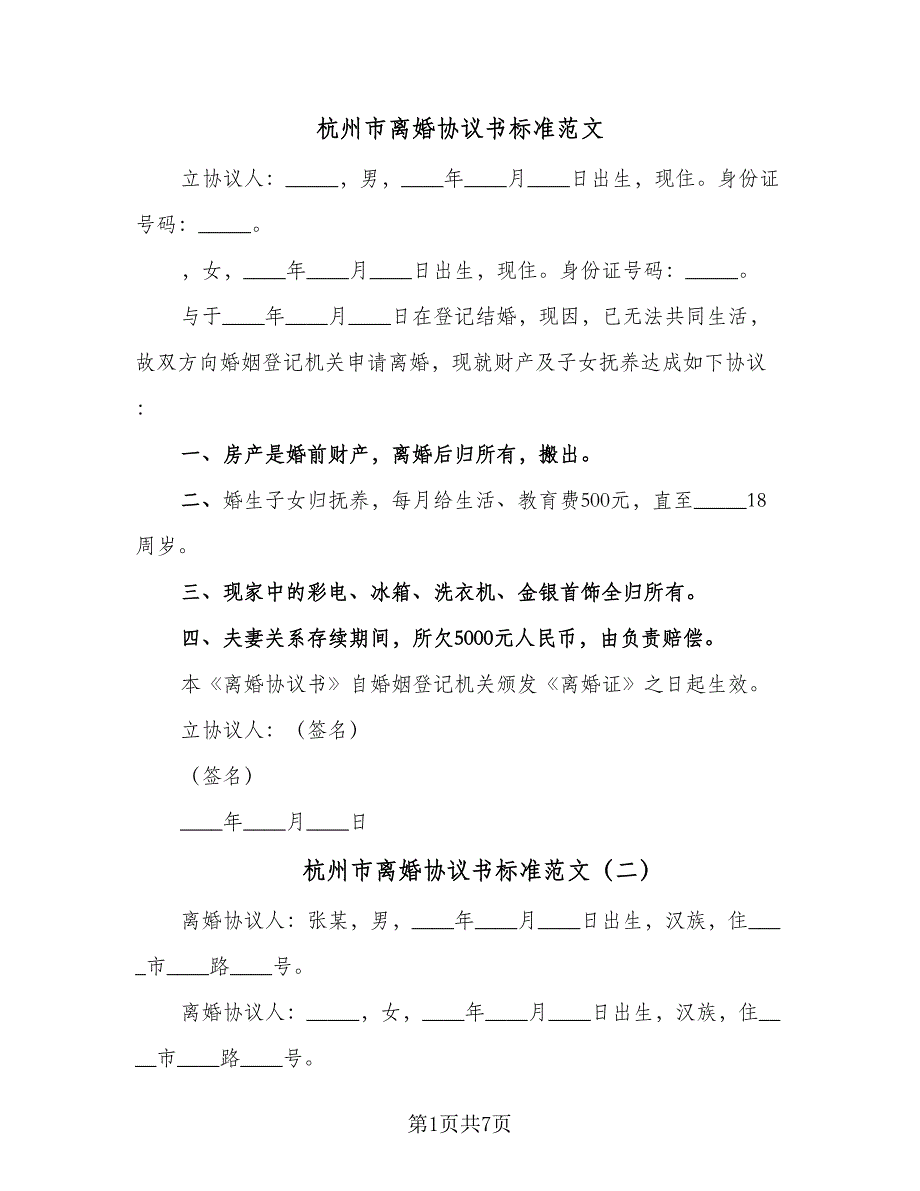 杭州市离婚协议书标准范文
立协议人：_____，男，____年____月____日出生，现住。身份证
号码：_____。
，女，____年____月____日出生，现住。身份证号码：_____。
与于____年____月____日在登记结婚，现因，已无法共同生活，
故双方向婚姻登记机关申请离婚，现就财产及子女抚养达成如下协议
：
一、房产是婚前财产，离婚后归所有，搬出。
二、婚生子女归抚养，每月给生活、教育费500元，直至_____18
周岁。
三、现家中的彩电、冰箱、洗衣机、金银首饰全归所有。
四、夫妻关系存续期间，所欠5000元人民币，由负责赔偿。
本《离婚协议书》自婚姻登记机关颁发《离婚证》之日起生效。
立协议人：（签名）
（签名）
____年____月____日
杭州市离婚协议书标准范文（二）
离婚协议人：张某，男，____年____月____日出生，汉族，住___
_市____路____号。
离婚协议人：_____，女，____年____月____日出生，汉族，住__
__市____路____号。
第1页共7页